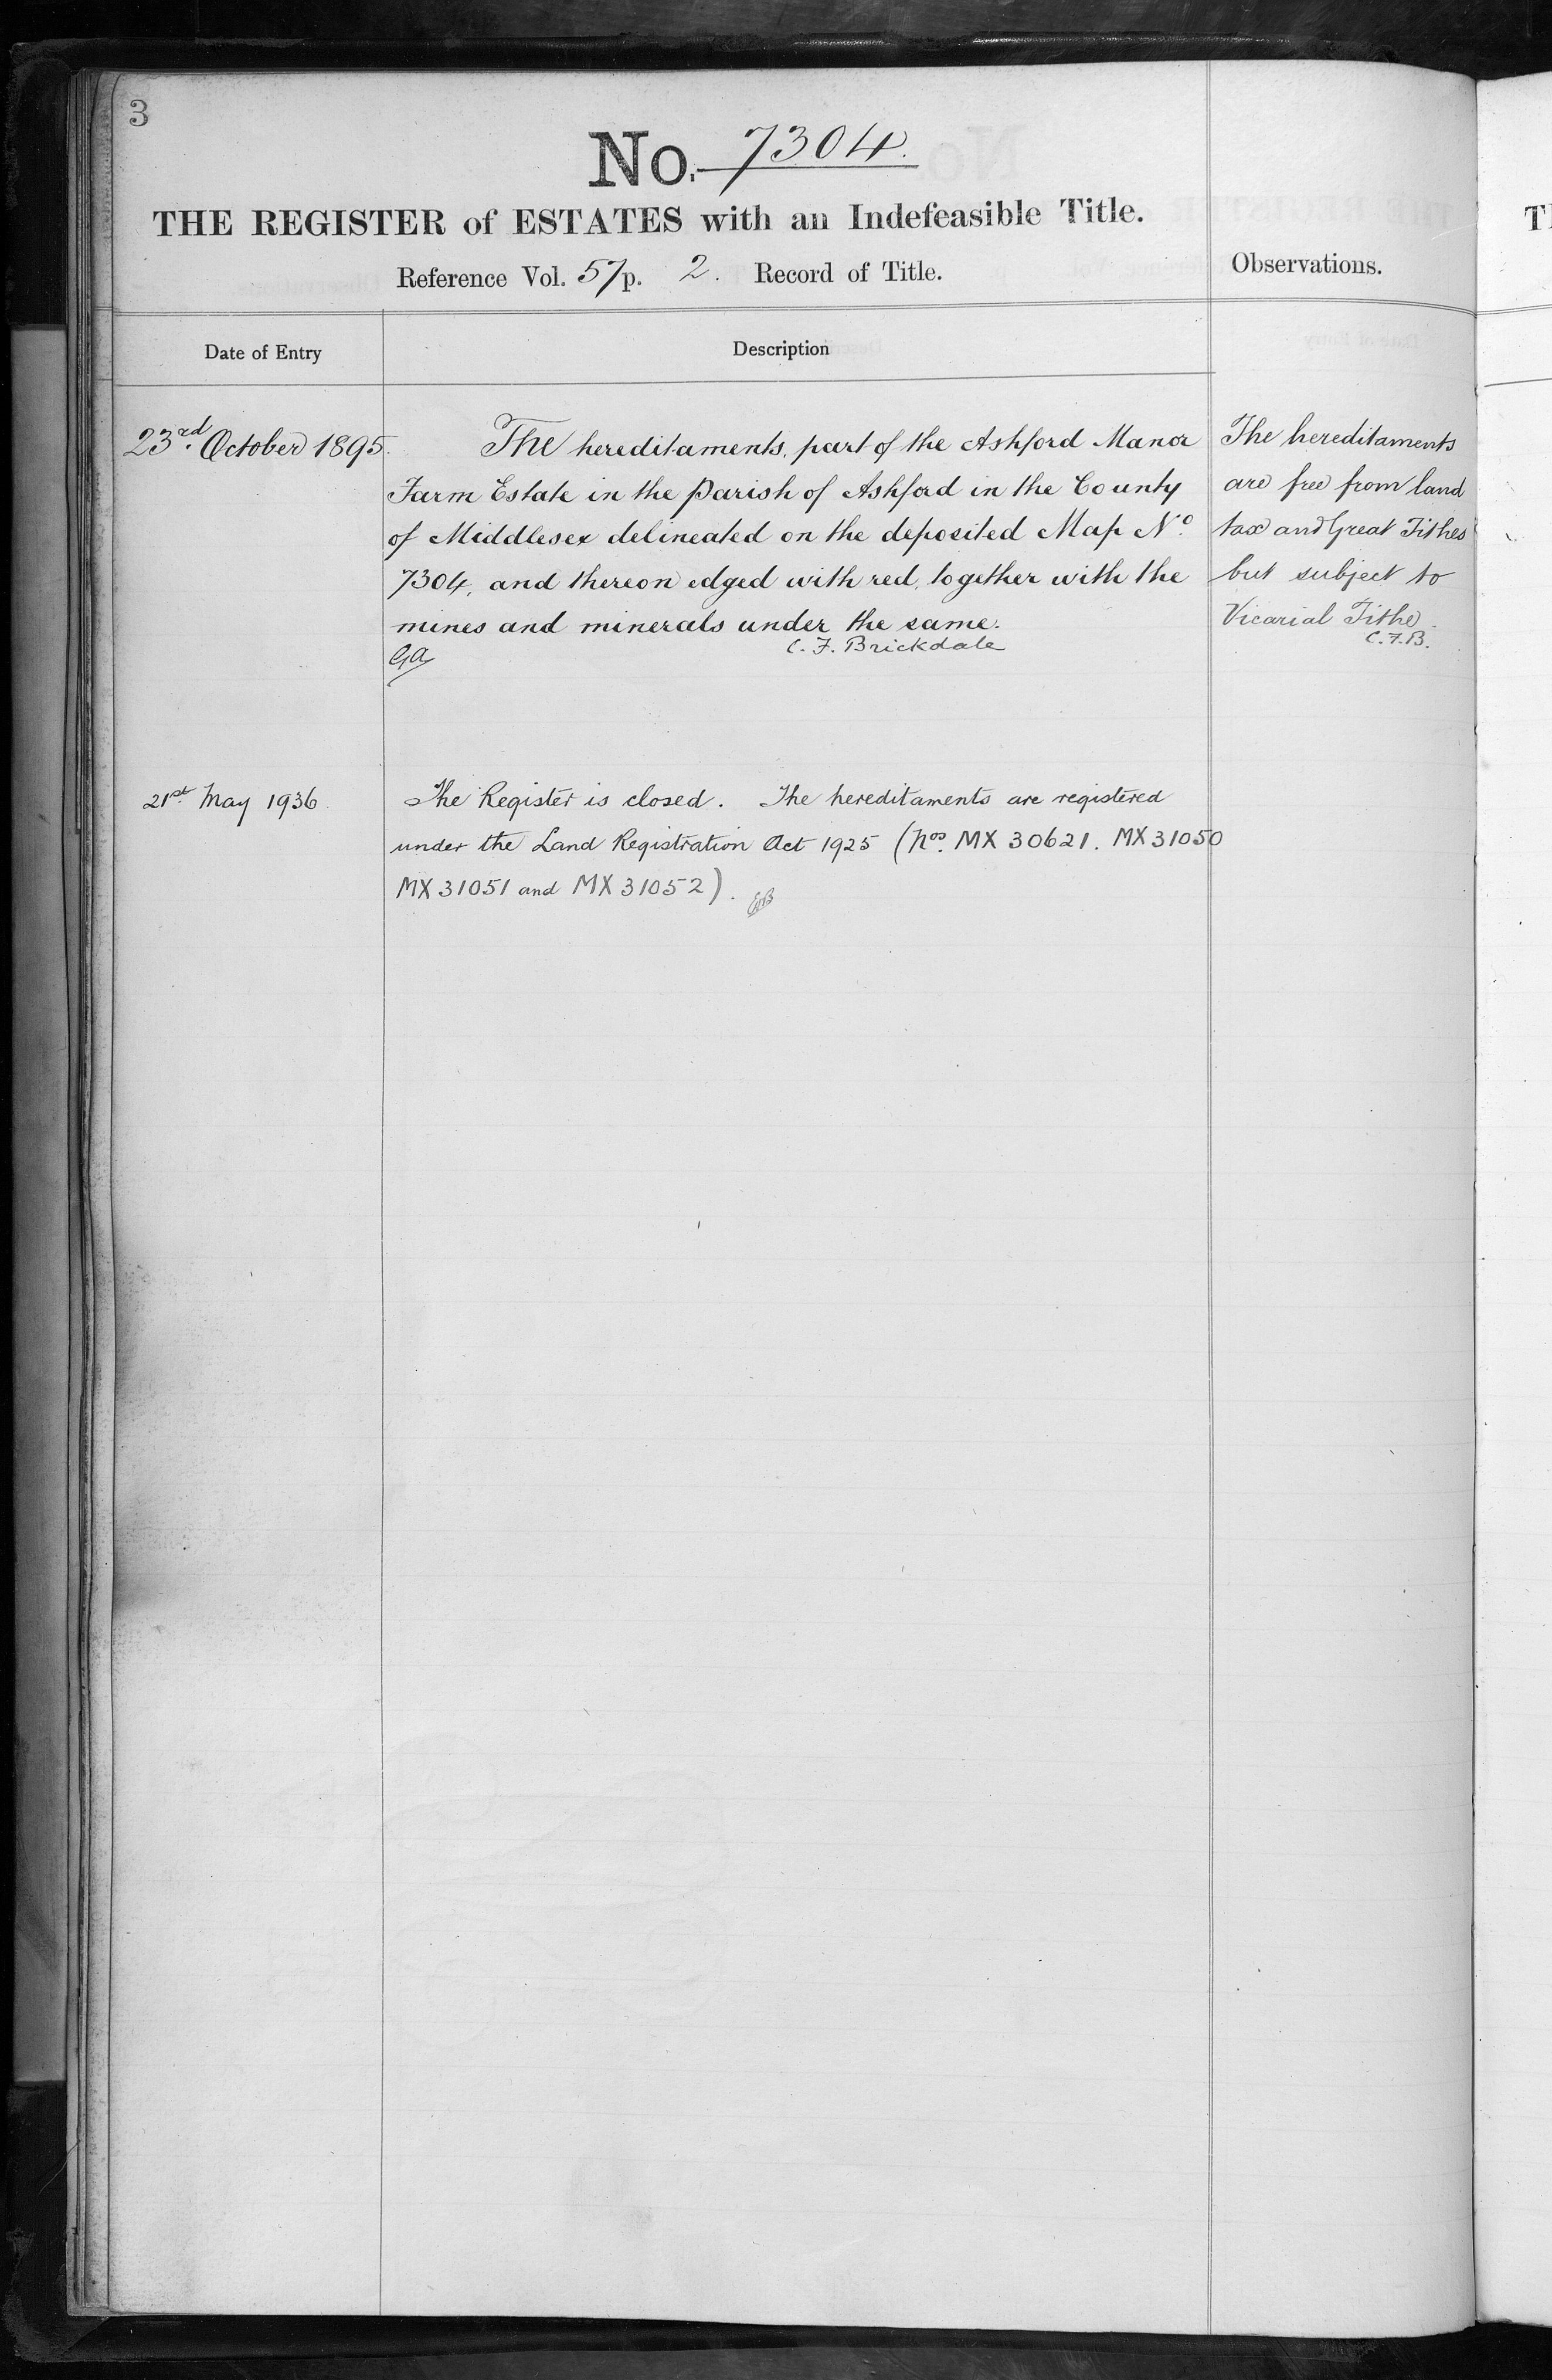 3
No. 7304.
THE REGISTER of ESTATES with an Indefeasible Title.
Reference Vol. 57 p. 2. Record of Title.
Observations.
Date of Entry
Description
23rd October 1895.
The hereditaments, part of the Ashford Manor
Farm Estate in the Parish of Ashford in the County
of Middlesex delineated on the deposited Map No.
7304, and thereon edged with red, together with the
mines and minerals under the same.
GA
C. F. Brickdale
The hereditaments
are free from land
tax and Great Tithes
but subject to
Vicarial Tithe.
C.F.B.
21st May 1936.
The Register is closed. The hereditaments are registered
under the Land Registration Act 1925 (Nos. MX 30621. MX 31050
MX 31051 and MX 31052).